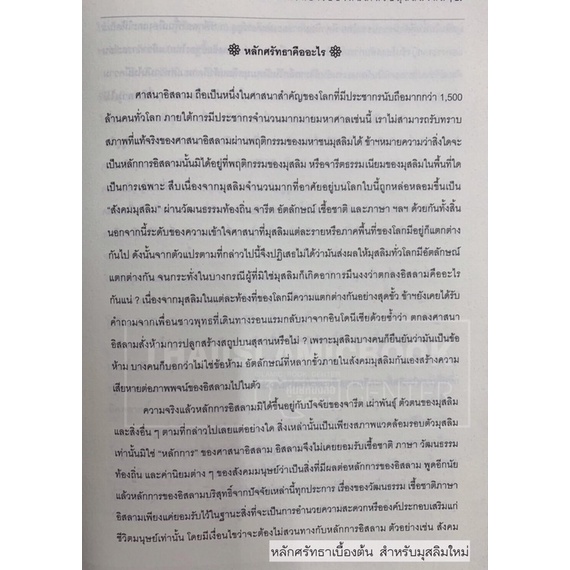 ❁ หลักศรัทธาคืออะไร ❁
ศาสนาอิสลาม ถือเป็นหนึ่งในศาสนาสำคัญของโลกที่มีประชากรนับถือมากกว่า 1,500
ล้านคนทั่วโลก ภายใต้การมีประชากรจำนวนมากมายมหาศาลเช่นนี้ เราไม่สามารถรับทราบ
สภาพที่แท้จริงของศาสนาอิสลามผ่านพฤติกรรมของมหาชนมุสลิมได้ ข้าฯหมายความว่าสิ่งใดจะ
เป็นหลักการอิสลามนั้นมิได้อยู่ที่พฤติกรรมของมุสลิม หรือจารีตธรรมเนียมของมุสลิมในพื้นที่ใด
เป็นการเฉพาะ สืบเนื่องจากมุสลิมจำนวนมากที่อาศัยอยู่บนโลกใบนี้ถูกหล่อหลอมขึ้นเป็น
"สังคมมุสลิม" ผ่านวัฒนธรรมท้องถิ่น จารีต อัตลักษณ์ เชื้อชาติ และภาษา ฯลฯ ด้วยกันทั้งสิ้น
นอกจากนี้ระดับของความเข้าใจศาสนาที่มุสลิมแต่ละรายหรือภาคพื้นที่ของโลกมีอยู่ก็แตกต่าง
กันไป ดังนั้นจากตัวแปรตามที่กล่าวไปนี้จึงปฏิเสธไม่ได้ว่ามันส่งผลให้มุสลิมทั่วโลกมีอัตลักษณ์
แตกต่างกัน จนกระทั่งในบางกรณีผู้ที่มิใช่มุสลิมก็เกิดอาการมึนงงว่าตกลงอิสลามคืออะไร
กันแน่ ? เนื่องจากมุสลิมในแต่ละท้องที่ของโลกมีความแตกต่างกันอย่างสุดขั้ว ข้าฯยังเคยได้รับ
คำถามจากเพื่อนชาวพุทธที่เดินทางรอนแรมกลับมาจากอินโดนีเซียด้วยซ้ำว่า ตกลงศาสนา
อิสลามสั่งห้ามการปลูกสร้างสถูปบนสุสานหรือไม่ ? เพราะมุสลิมบางคนก็ยืนยันว่ามันเป็นข้อ
ห้าม บางคนก็บอกว่าไม่ใช่ข้อห้าม อัตลักษณ์ที่หลากขั้วภายในสังคมมุสลิมกันเองสร้างความ
เสียหายต่อภาพพจน์ของอิสลามไปในตัว
ความจริงแล้วหลักการอิสลามมิได้ขึ้นอยู่กับปัจจัยของจารีต เผ่าพันธุ์ ตัวตนของมุสลิม
และสิ่งอื่น ๆ ตามที่กล่าวไปเลยแต่อย่างใด สิ่งเหล่านั้นเป็นเพียงสภาพแวดล้อมรอบตัวมุสลิม
เท่านั้นมิใช่ "หลักการ" ของศาสนาอิสลาม อิสลามจึงไม่เคยยอมรับเชื้อชาติ ภาษา วัฒนธรรม
ท้องถิ่น และค่านิยมต่าง ๆ ของสังคมมนุษย์ว่าเป็นสิ่งที่มีผลต่อหลักการของอิสลาม พูดอีกนัย
แล้วหลักการของอิสลามบริสุทธิ์จากปัจจัยเหล่านี้ทุกประการ เรื่องของวัฒนธรรม เชื้อชาติภาษา
อิสลามเพียงแค่ยอมรับไว้ในฐานะสิ่งที่จะเป็นการอำนวยความสะดวกหรือองค์ประกอบเสริมแก่
ชีวิตมนุษย์เท่านั้น โดยมีเงื่อนไขว่าจะต้องไม่สวนทางกับหลักการอิสลาม ตัวอย่างเช่น สังคม
หลักศรัทธาเบื้องต้น สำหรับมุสลิมใหม่